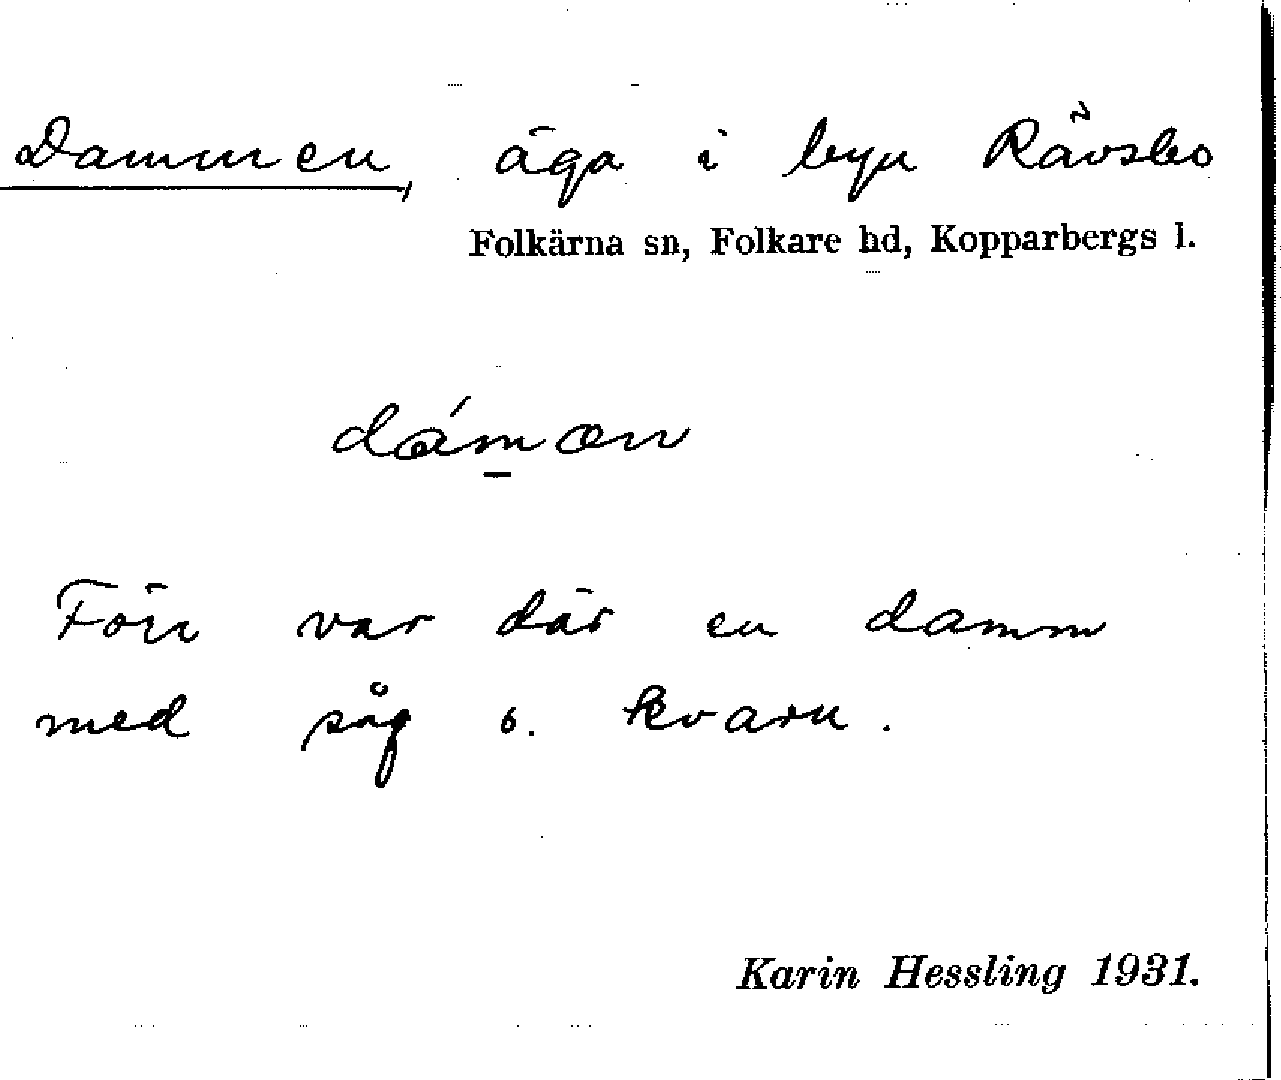 Dammen, äga i byn Rävsbo
Folkärna sn, Folkare hd, Kopparbergs l.
dámɶn
Förr var där en damm
med såg o. kvarn.
Karin Hessling 1931.